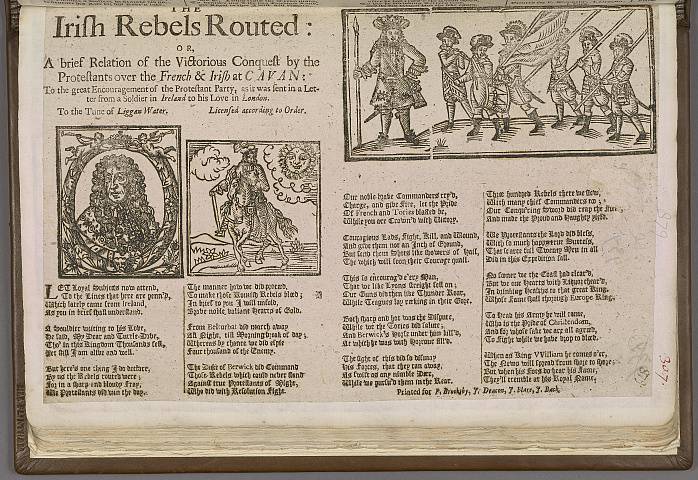 THE
Irish Rebels Routed:
OR,
A brief Relation of the Victorious Conquest by the
Protestants over the French & Irish at CAVAN:
To the great Encouragement of the Protestant Party, as it was sent in a Let-
ter from a Soldier in Ireland to his Love in London.
To the Tune of Liggan Water. Licensed according to Order.
LET Loyal Subjects now attend,
To the Lines that here are penn'd,
Which lately came from Ireland,
As you in brief shall understand.
A Souldier writing to his Love,
He said, My Dear and Turtle-Dove,
Tho' in this Kingdom Thousands fell,
Yet still I am alive and well.
But here's one thing I do declare,
By us the Rebels routed were;
For in a sharp and bloody Fray,
We Protestants did win the day.
The manner how we did proceed,
To make those Bloudy Rebels bleed;
In brief to you I will unfold,
Brave noble valiant Hearts of Gold.
From Belturbat did march away
All Night, till Morning break of day;
Whereas by chance we did espie
Four thousand of the Enemy.
The Duke of Berwick did Command
Those Rebels which could never stand
Against true Protestants of Might,
Who did with Resolution Fight.
Our noble brave Commanders cry'd,
Charge, and give Fire, let the Pride
Of French and Tories blasted be,
While you are Crown'd with Victory.
Couragious Lads, Fight, Kill, and Wound,
And give them not an Inch of Ground,
But send them Shots like showers of Hail,
The which will soon their Courage quail.
This so encourag'd e'ery Man,
That we like Lyons streight fell on;
Our Guns did then like Thunder Roar,
While Teagues lay reeking in their Gore.
Both sharp and hot was the Dispute,
While we the Tories did salute;
And Berwick's Horse under him kill'd,
At which he was with Horrour fill'd.
The sight of this did so dismay
His Forces, that they ran away,
As swift as any nimble Deer,
While we pursu'd them in the Rear.
Three hundred Rebels there we slew,
With many chief Commanders too;
Our Conqu'ring Sword did crop the
And made the Proud and Haughty yield.
We Protestants the Lord did bless,
With so much happy Success,
That scarce full Twenty Men in all
Did in this Expedition fall.
No sooner we the Coast had clear'd,
But we our Hearts with Liquor chear'd,
In drinking Healths to that great King,
Whose Fame shall through Europe Ring.
To Head his Army he will come,
Who is the Pride of Christendom,
And for whose sake we are all agreed,
To Fight while we have drop to bleed.
When as King VVilliam he comes o'er,
The News will spread from shore to shore;
But when his Foes do hear his Fame,
They'll tremble at his Royal Name,
Printed for P. Brooksby, J. Deacon, J. Blare, J. Back.
307